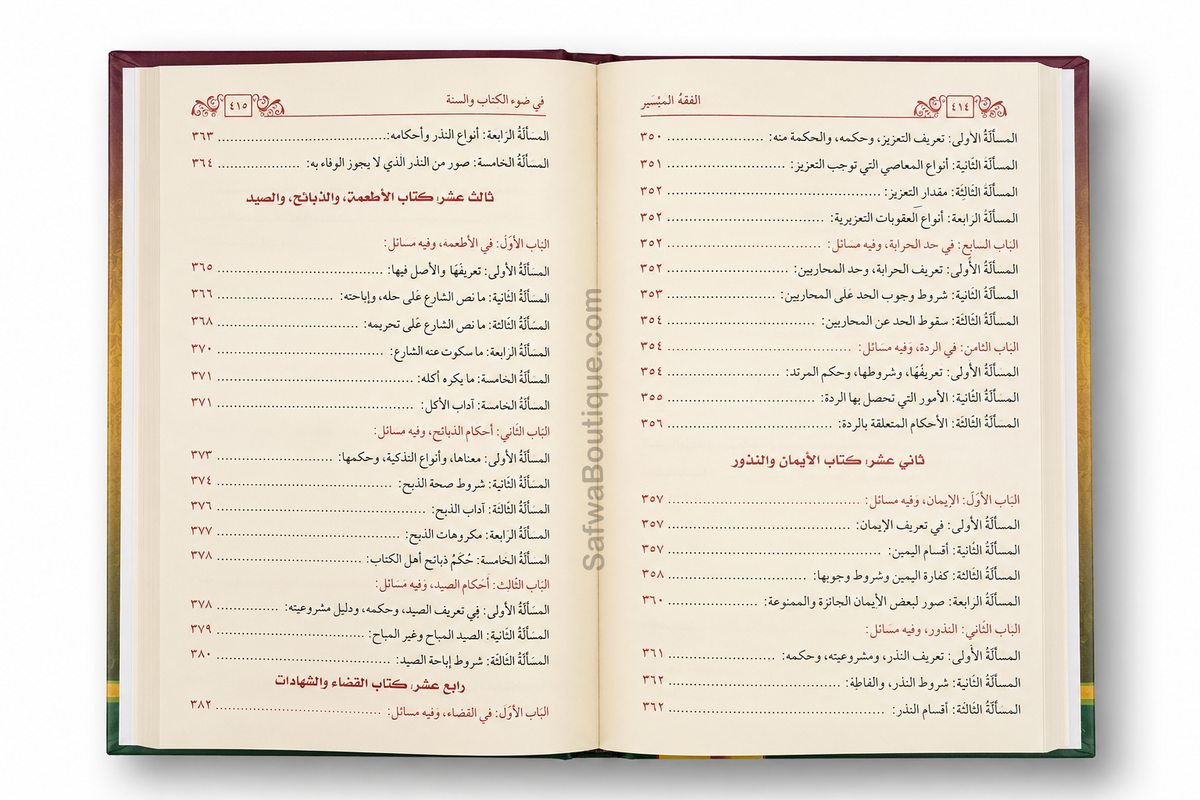 ٤١٤
الفقهُ الميُسَير
المسألَةُ الأولى: تعريف التعزيز، وحكمه، والحكمة منه: ٣٥٠
المسألَةُ الثانية: أنواع المعاصي التي توجب التعزيز: ٣٥١
المسألَةُ الثالِثة: مقدار التعزيز: ٣٥٢
المسألَةُ الرابعة: أنواع العقوبات التعزيرية: ٣٥٢
البَاب السابع: في حد الحرابة، وفيه مسَائل: ٣٥٢
المسألَةُ الأولى: تعريف الحرابة، وحد المحاربين: ٣٥٢
المسألَةُ الثانية: شروط وجوب الحد عَلى المحاربين: ٣٥٣
المسألَةُ الثالثة: سقوط الحد عن المحاربين: ٣٥٤
البَاب الثامن: في الردة، وَفيه مسَائل: ٣٥٤
المسألَةُ الأولى: تعريفُهَا، وشروطها، وحكم المرتد: ٣٥٤
المسألَةُ الثانية: الأمور التي تحصل بها الردة: ٣٥٥
المسألَةُ الثالثة: الأحكام المتعلقة بالردة: ٣٥٦
ثاني عشر: كتاب الأيمان والنذور
البَاب الأوَلَ: الإيمان، وَفيه مسائل: ٣٥٧
المسألَةُ الأولى: في تعريف الإيمان: ٣٥٧
المسألَةُ الثانية: أقسام اليمين: ٣٥٧
المسألَةُ الثالثة: كفارة اليمين وشروط وجوبها: ٣٥٨
المسألَةُ الرابعة: صور لبعض الأيمان الجائزة والممنوعة: ٣٦٠
البَاب الثَاني: النذور، وفيه مسَائل:
المسألَةُ الأولى: تعريف النذر، ومشروعيته، وحكمه: ٣٦١
المسألَةُ الثانية: شروط النذر، وألفاظه: ٣٦٢
المسألَةُ الثالثة: أقسام النذر: ٣٦٢
في ضوء الكتاب والسنة
٤١٥
المسألَةُ الرَابعة: أنواع النذر وأحكامه: ٣٦٣
المسألَةُ الخامسة: صور من النذر الذي لا يجوز الوفاء به: ٣٦٤
ثالث عشر: كتاب الأطعمة، والذبائح، والصيد
البَاب الأوَلَ: في الأطعمَة، وَفيه مسائل:
المسألَةُ الأولى: تعريفَهَا والأصل فيها: ٣٦٥
المسألَةُ الثانية: ما نص الشارع عَلى حله، وإباحته: ٣٦٦
المسألَةُ الثالثة: ما نص الشارع عَلى تحريمه: ٣٦٨
المسألَةُ الرابعة: ما سكوت عنه الشارع: ٣٧٠
المسألَةُ الخامسة: ما يكره أكله: ٣٧١
المسألَةُ الخامسة: آداب الأكل: ٣٧١
البَاب الثَاني: أحكام الذبائح، وفيه مسائل:
المسألَةُ الأولى: معناها، وأنواع التذكية، وحكمها: ٣٧٣
المسألَةُ الثانية: شروط صحة الذبح: ٣٧٤
المسألَةُ الثالثة: آداب الذبح: ٣٧٦
المسألَةُ الرَابعة: مكروهات الذبح: ٣٧٧
المسألَةُ الخامسة: حُكَمُ ذبائح أهل الكتاب: ٣٧٨
البَاب الثَالث: أحَكام الصيد، وَفيه مسَائل:
المسألَةُ الأولى: في تعريف الصيد، وحكمه، ودليل مشروعيته: ٣٧٨
المسألَةُ الثانية: الصيد المباح وغير المباح: ٣٧٩
المسألَةُ الثالثة: شروط إباحة الصيد: ٣٨٠
رابع عشر: كتاب القضاء والشهادات
البَاب الأوَلَ: في القضاء، وَفيه مسائل: ٣٨٢
SafwaBoutique.com